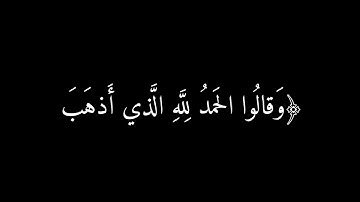 ﴿وَقالُوا الحَمدُ لِلَّهِ الَّذي أَذهَبَ